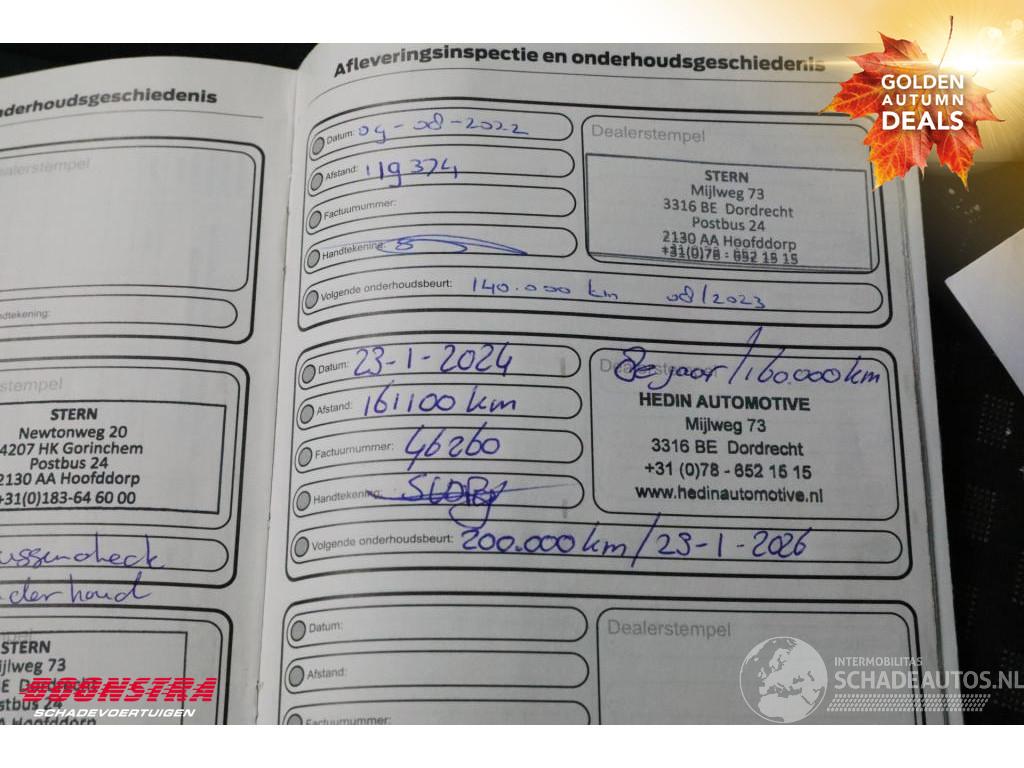 GOLDEN
AUTUMN
DEALS
nderhoudsgeschiedenis
ealerstempel
ndtekening:
stempel
STERN
Newtonweg 20
4207 HK Gorinchem
Postbus 24
2130 AA Hoofddorp
+31(0)183-64 60 00
ussencheck
derhoud
STERN
ijlweg 73
Afleveringsinspectie en onderhoudsgeschiedenis
Datum: 09-08-2022
Afstand: 119374
Factuurnummer:
Handtekening:
Volgende onderhoudsbeurt: 140.000 km 08/2023
Dealerstempel
STERN
Mijlweg 73
3316 BE Dordrecht
Postbus 24
2130 AA Hoofddorp
+31(0)78 - 652 15 15
Datum: 23-1-2024
Afstand: 161100 km
Factuurnummer: 46260
Handtekening:
Volgende onderhoudsbeurt: 200.000 km / 23-1-2026
Dealerstempel
jaar / 160.000 km
HEDIN AUTOMOTIVE
Mijlweg 73
3316 BE Dordrecht
+31 (0)78 - 652 15 15
www.hedinautomotive.nl
Datum:
Afstand:
Factuurnummer:
Dealerstempel
BOONSTRA
SCHADEVOERTUIGEN
INTERMOBILITAS
SCHADEAUTOS.NL